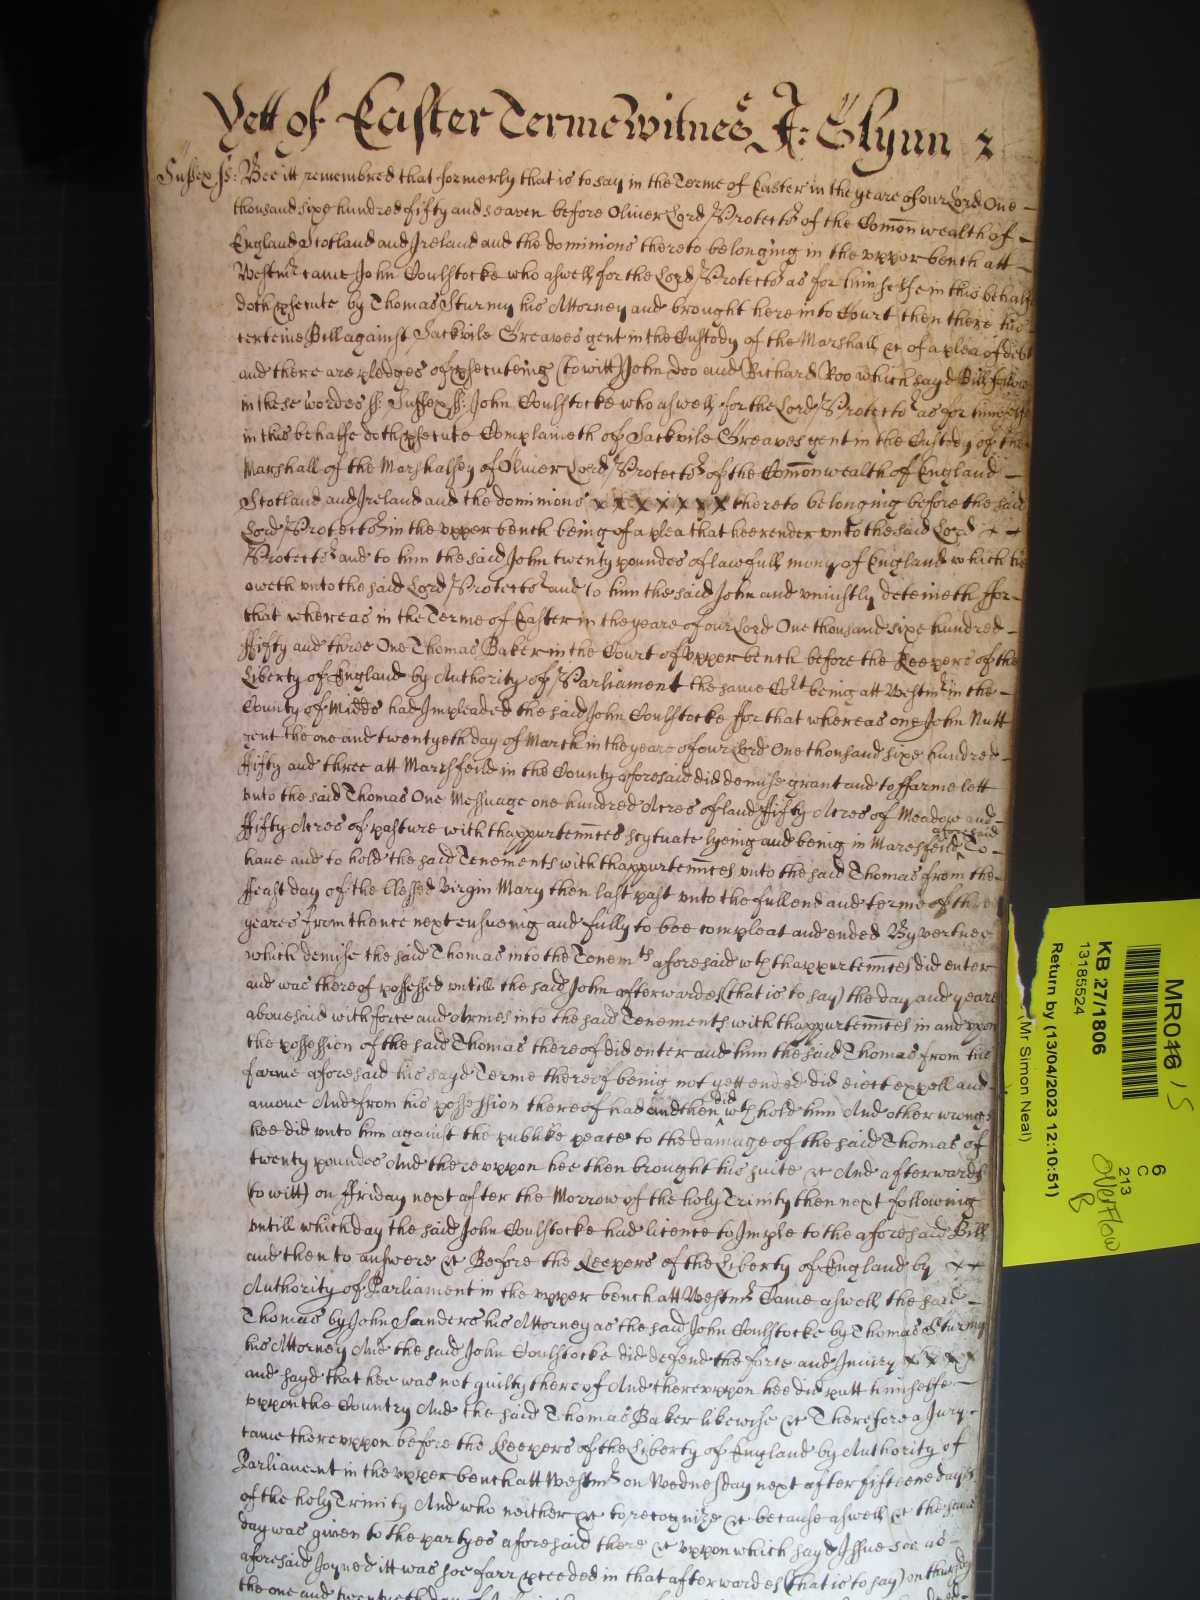 Yett of Easter Terme Witnes J: Glynn 2
Sussex ss: Bee itt remembred that formerly that is to say in the Terme of Easter in the yeare of our Lord One
thousand sixe hundred fifty and seaven before Oliver Lord Protector of the Comon wealth of
England Scotland and Ireland and the dominions thereto belonging in the upper bench att
Westmr came John Coulstocke who aswell for the Lord Protector as for himselfe in this behalfe
doth psecute by Thomas Sturmy his Attorney and brought here into Court then there his
certeine Bill against Sackvile Greaves gent in the Custody of the Marshall &c of a plea of debt
and there are pledges of psecuteing (to witt) John Doo and Richard Roo which sayd Bill follow
in these wordes ss: Sussex ss: John Coulstocke who aswell for the Lord Protector as for himselfe
in this behalfe doth psecute Complaineth of Sackvile Greaves gent in the Custody of the
Marshall of the Marshalsey of Oliver Lord Protector of the Comon wealth of England
Scotland and Ireland and the dominions x x x x x x x thereto belonging before the said
Lord Protector in the upper bench being of a plea that hee render unto the said Lord x x
Protector and to him the said John twenty poundes of lawfull mony of England which he
oweth unto the said Lord Protector and to him the said John and uniustly deteineth ffor
that whereas in the Terme of Easter in the yeare of our Lord One thousand sixe hundred
ffifty and three One Thomas Baker in the Court of upper bench before the Keepers of the
Liberty of England by Authority of Parliament the same Cort being att Westmr in the
County of Midds had Impleaded the said John Coulstocke ffor that whereas one John Nutt
gent the one and twentyeth day of March in the yeare of our Lord One thousand sixe hundred
ffifty and three att Maresfeild in the County aforesaid did demise grant and to ffarme lett
unto the said Thomas One Messuage one hundred Acres of land ffifty Acres of Meadow and
ffifty Acres of pasture with thappurtennces scytuate lyeing and being in Maresfeild aforesaid To
have and to hold the said Tenements with thappurtennces unto the said Thomas from the
ffeast day of the blessed Virgin Mary then last past unto the full end and terme of three
yeares from thence next ensueing and fully to bee compleat and ended By vertue
which demise the said Thomas into the Tenemts aforesaid wth thappurtennces did enter
and was thereof possessed untill the said John afterwardes (that is to say) the day and yeare
abovesaid with force and Armes into the said Tenements with thappurtennces in and upon
the possession of the said Thomas thereof did enter and him the said Thomas from his
farme aforesaid his sayd Terme thereof being not yett ended did eiect expell and
amove And from his possession thereof had and then did wth hold him And other wronges
hee did unto him against the publike peace to the damage of the said Thomas of
twenty poundes And thereuppon hee then brought his suite &c And afterwardes
(to witt) on ffriday next after the Morrow of the holy Trinity then next following
untill which day the said John Coulstocke had licence to Imple to the aforesaid Bill
and then to answere &c Before the Keepers of the Liberty of England by x x
Authority of Parliament in the upper bench att Westmr Came aswell the said
Thomas by John Sanders his Attorney as the said John Coulstocke by Thomas Sturmy
his Attorney And the said John Coulstocke did defend the force and Iniury x x x x
and sayd that hee was not guilty thereof And thereuppon hee did putt himselfe
uppon the Country And the said Thomas Baker likewise &c Therefore a Jury
came thereuppon before the Keepers of the Liberty of England by Authority of
Parliament in the upper bench att Westmr on Wednesday next after fifteene dayes
of the holy Trinity And who neither &c to recognize &c because aswell &c the same
day was given to the partyes aforesaid there &c uppon which sayd Issue soe as
aforesaid Joyned itt was soe farr pceeded in that afterwardes (that is to say) on thursday
the one and twentieth day of
MR016 / S
KB 27/1806
13185524
Return by (13/04/2023 12:10:51)
(Mr Simon Neal)
6
C
213
Overflow
B